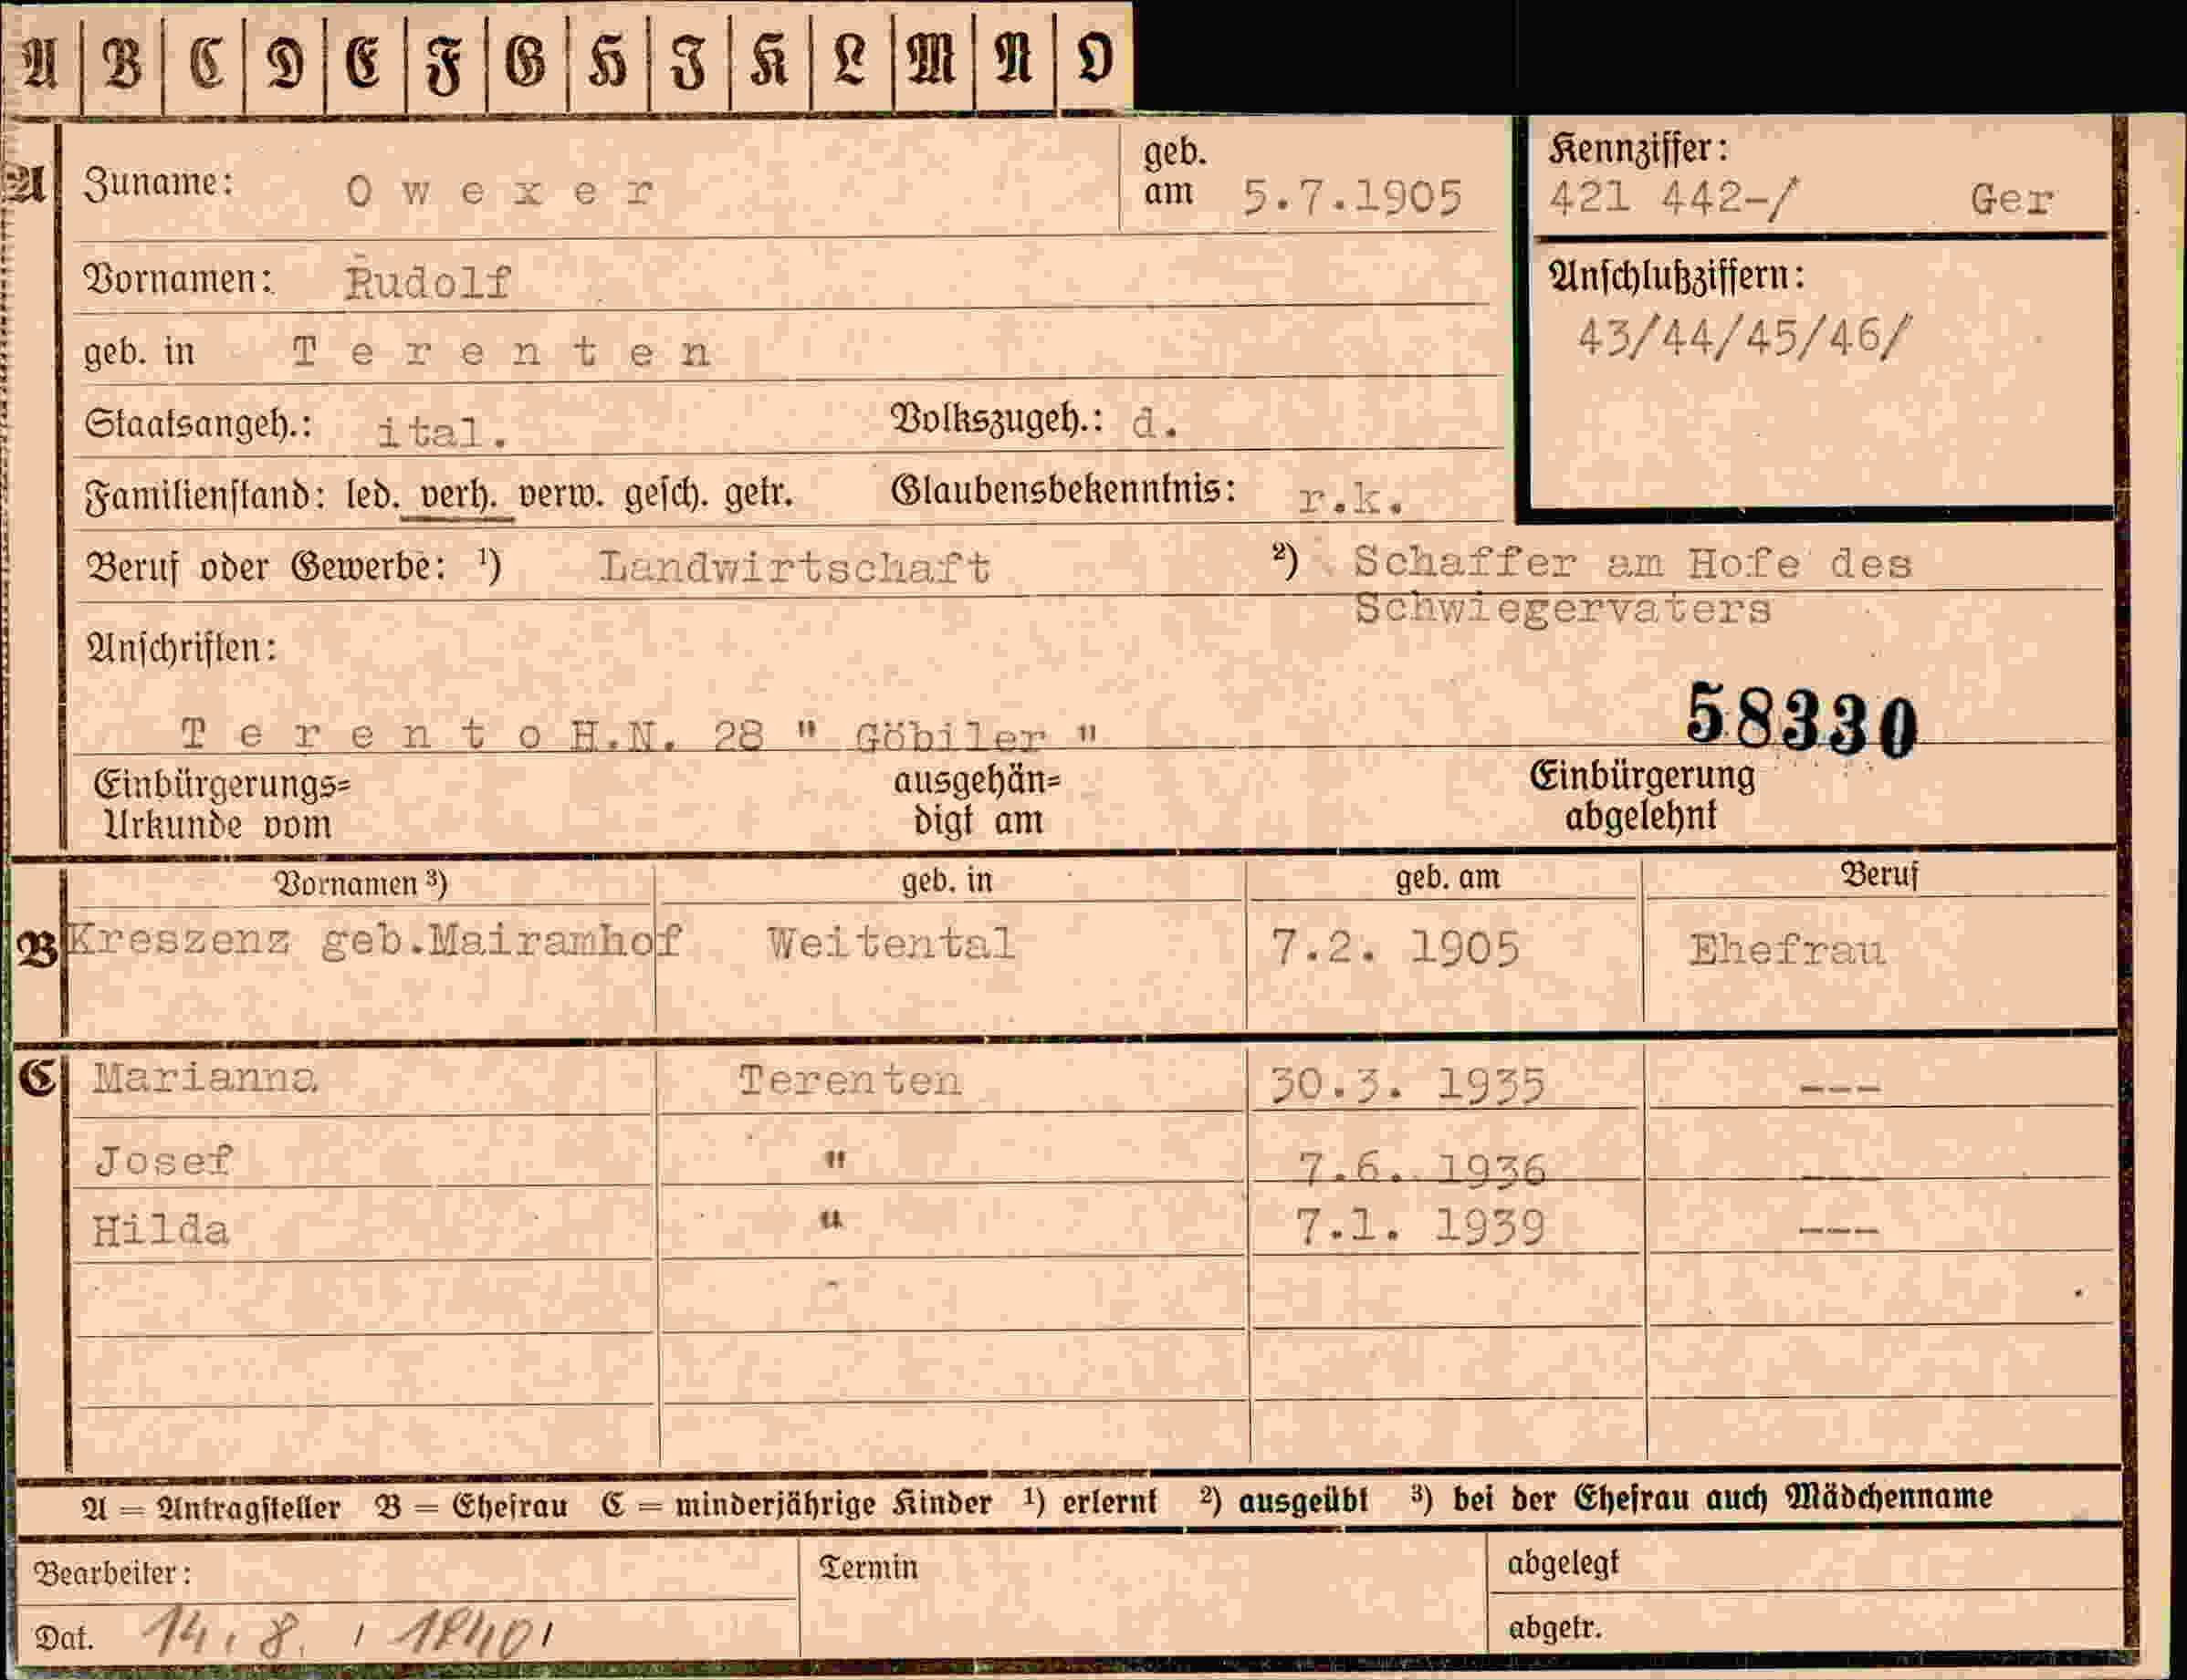 A B C D E F G H I K L M N O
A Zuname: Owexer geb. am 5.7.1905
Kennziffer: 421 442-/ Ger
Vornamen: Rudolf
Anschlußziffern: 43/44/45/46/
geb. in Terenten
Staatsangeh.: ital. Volkszugeh.: d.
Familienstand: led. verh. verw. gesch. getr. Glaubensbekenntnis: r.k.
Beruf oder Gewerbe: ¹) Landwirtschaft ²) Schaffer am Hofe des
Schwiegervaters
Anschriften:
58330
Terento H.N. 28 " Göbiler "
Einbürgerungs= ausgehän= Einbürgerung
Urkunde vom digt am abgelehnt
Vornamen ³) geb. in geb. am Beruf
B Kreszenz geb.Mairamhof Weitental 7.2. 1905 Ehefrau
C Marianna Terenten 30.3. 1935 ---
Josef " 7.6. 1936 ---
Hilda " 7.1. 1939 ---
A = Antragsteller B = Ehefrau C = minderjährige Kinder ¹) erlernt ²) ausgeübt ³) bei der Ehefrau auch Mädchenname
Bearbeiter: Termin abgelegt
Dat. 14. 8. 1940 abgetr.